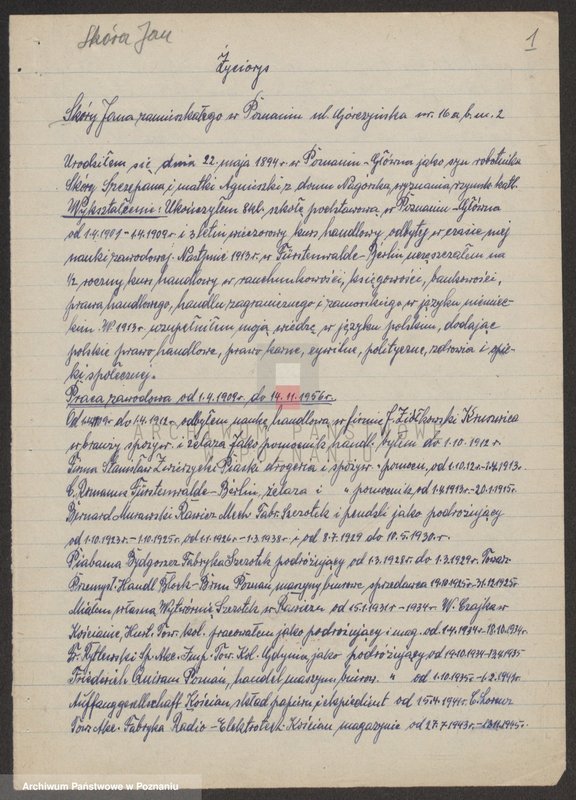 Skóra Jan
1
Życiorys
Skóry Jana zamieszkałego w Poznaniu ul. Górczyńska nr. 16 a, b. m. 2
Urodziłem się dnia 22. maja 1894 r. w Poznaniu-Główna jako syn robotnika
Skóry Szczepana i matki Agnieszki z domu Nagórska, wyznania rzymsko katl.
Wykształcenie: Ukończyłem 8 kl. szkołę podstawową w Poznaniu-Główna
od 1.4.1901-1.4.1909 r. i 3 letni wieczorowy kurs handlowy odbyty w czasie mej
nauki zawodowej. Następnie 1913 r. w Fürstenwalde-Berlin uczęszczałem na
1/2 roczny kurs handlowy w rachunkowości, księgowości, bankowości,
prawa handlowego, handlu zagranicznego i zamorskiego w języku niemiec-
kim. W 1913 r. uzupełniłem moją wiedzę w języku polskim, dodając
polskie prawo handlowe, prawo karne, cywilne, polityczne, zdrowia i opie-
ki społecznej.
Praca zawodowa od 1.4.1909 r. do 14.11.1956 r.
Od 1.4.1909 r. do 1.4.1912 r. odbyłem naukę handlową w firmie J. Ziółkowski
w branży spożyw. i żelaza jako pomocnik handl. byłem do 1.10.1912 r.
Firma Stanisław Zwierzycki Piaski drogeria i spożyw. - pomocn. od 1.10.12 r.-1.4.1913 r.
C. Romanus Fürstenwalde-Berlin, żelaza i " pomocnik, od 1.4.1913 r.-20.1.1915 r.
Bernard Murawski Rawicz Mech. Fabr. Szczotek i pendzli jako podróżujący
od 1.10.1923 r.-1.10.1925 r. od 1.1.1926 r.-1.3.1928 r. i od 8.7.1929 do 10.5.1930 r.
Piabama Bydgoszcz Fabryka Szczotek podróżujący od 1.3.1928 r. do 1.3.1929 r. Towar.
Przemysł. Handl. Block-Brun Poznań, maszyny biurowe, sprzedawca 19.10.1925 r.-31.12.1925 r.
Miałem własną Wytwórnię Szczotek w Rawiczu od 15.1.1931 r.-1934 r. W. Czajka w
Kościanie, Hurt. Tow. kol. pracowałem jako podróżujący i mag. od 1.4.1934 r.-18.10.1934 r.
Fr. Rytlewski Sp. Akc. Imp. Tow. Kol. Gdynia jako podróżujący od 19.10.1934 r.-
Friederich Poznań, handel maszyn biurow. " od 1.10.1935 r.-1.2.1941 r.
Auffanggesellschaft Kościan, skład papieru i ekspedient od 15.4.1941 r. C. Lorenz
Tow. Akc. Fabryka Radio-Elektrotech. Kościan, magazynier od 27.7.1943 r.-
ARCHIWUM PAŃSTWOWE
W POZNANIU
Archiwum Państwowe w Poznaniu